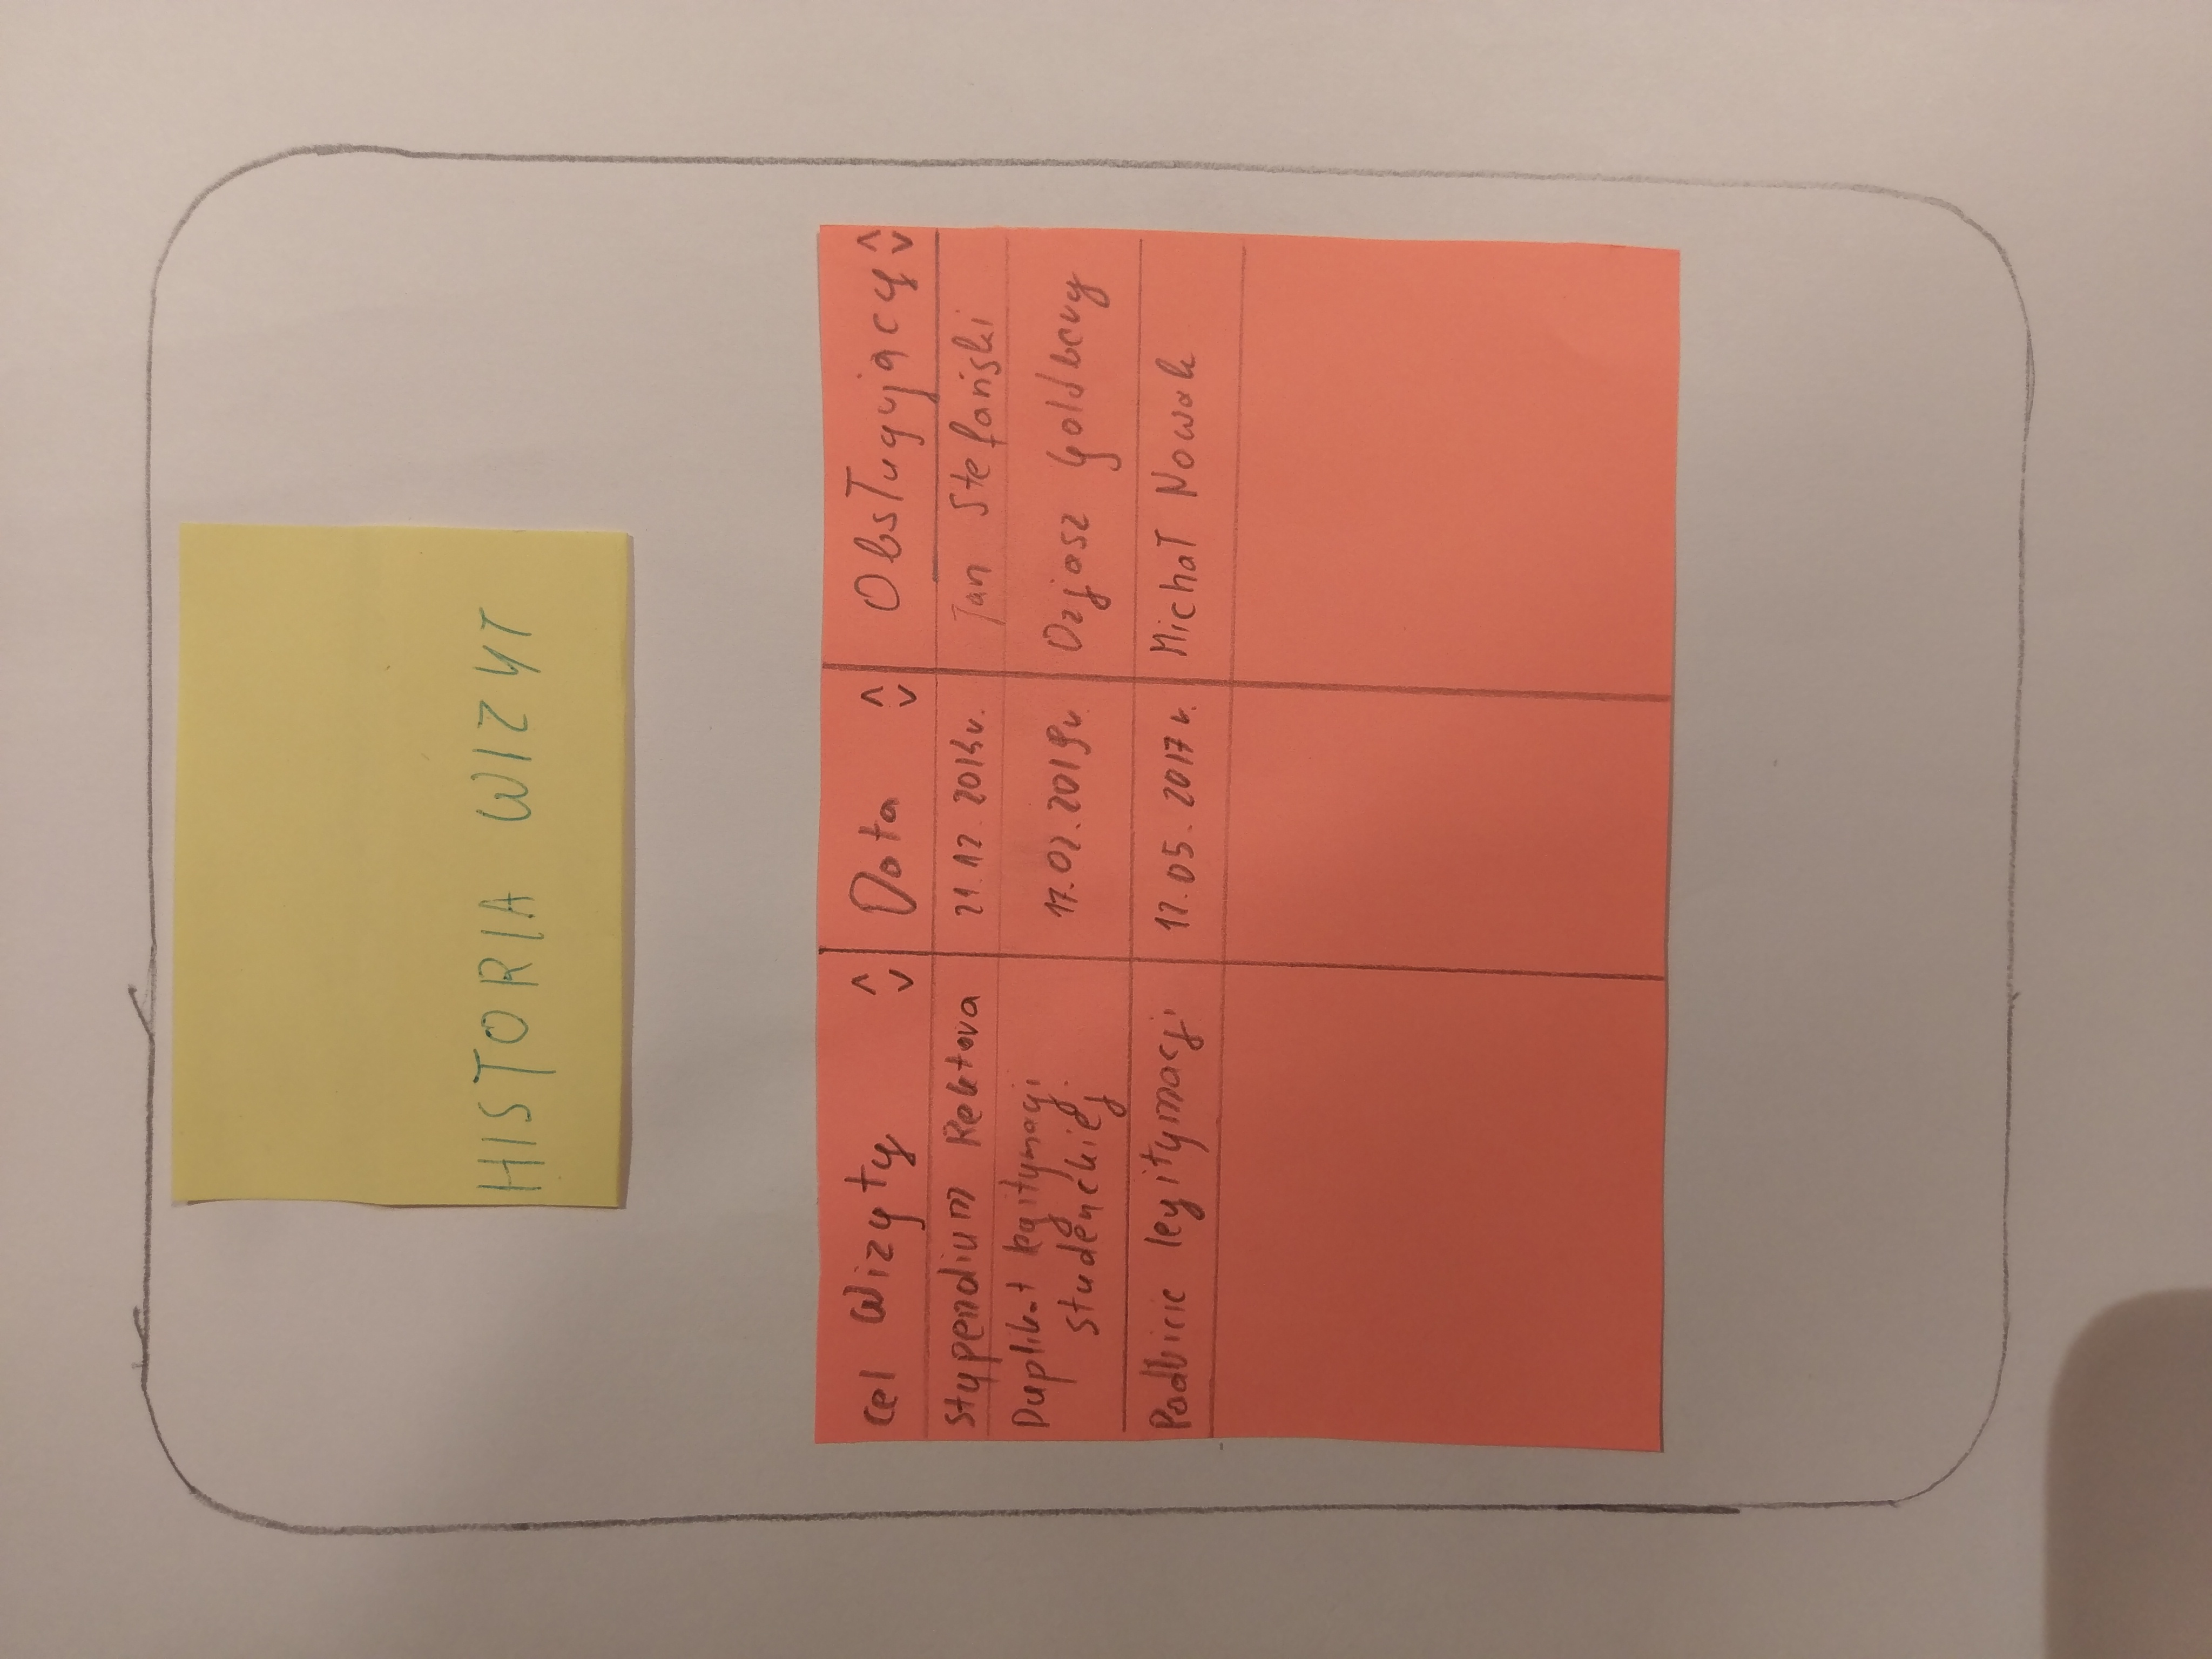 HISTORIA WIZYT
Cel Wizyty ^ v Data ^ v Obsługujący ^ v
Stypendium Rektora 21.12.2018r. Jan Stefański
Duplikat legitymacji
studenckiej 17.02.2019r. Ozjasz Goldberg
Podbicie legitymacji 12.05.2017r. Michał Nowak